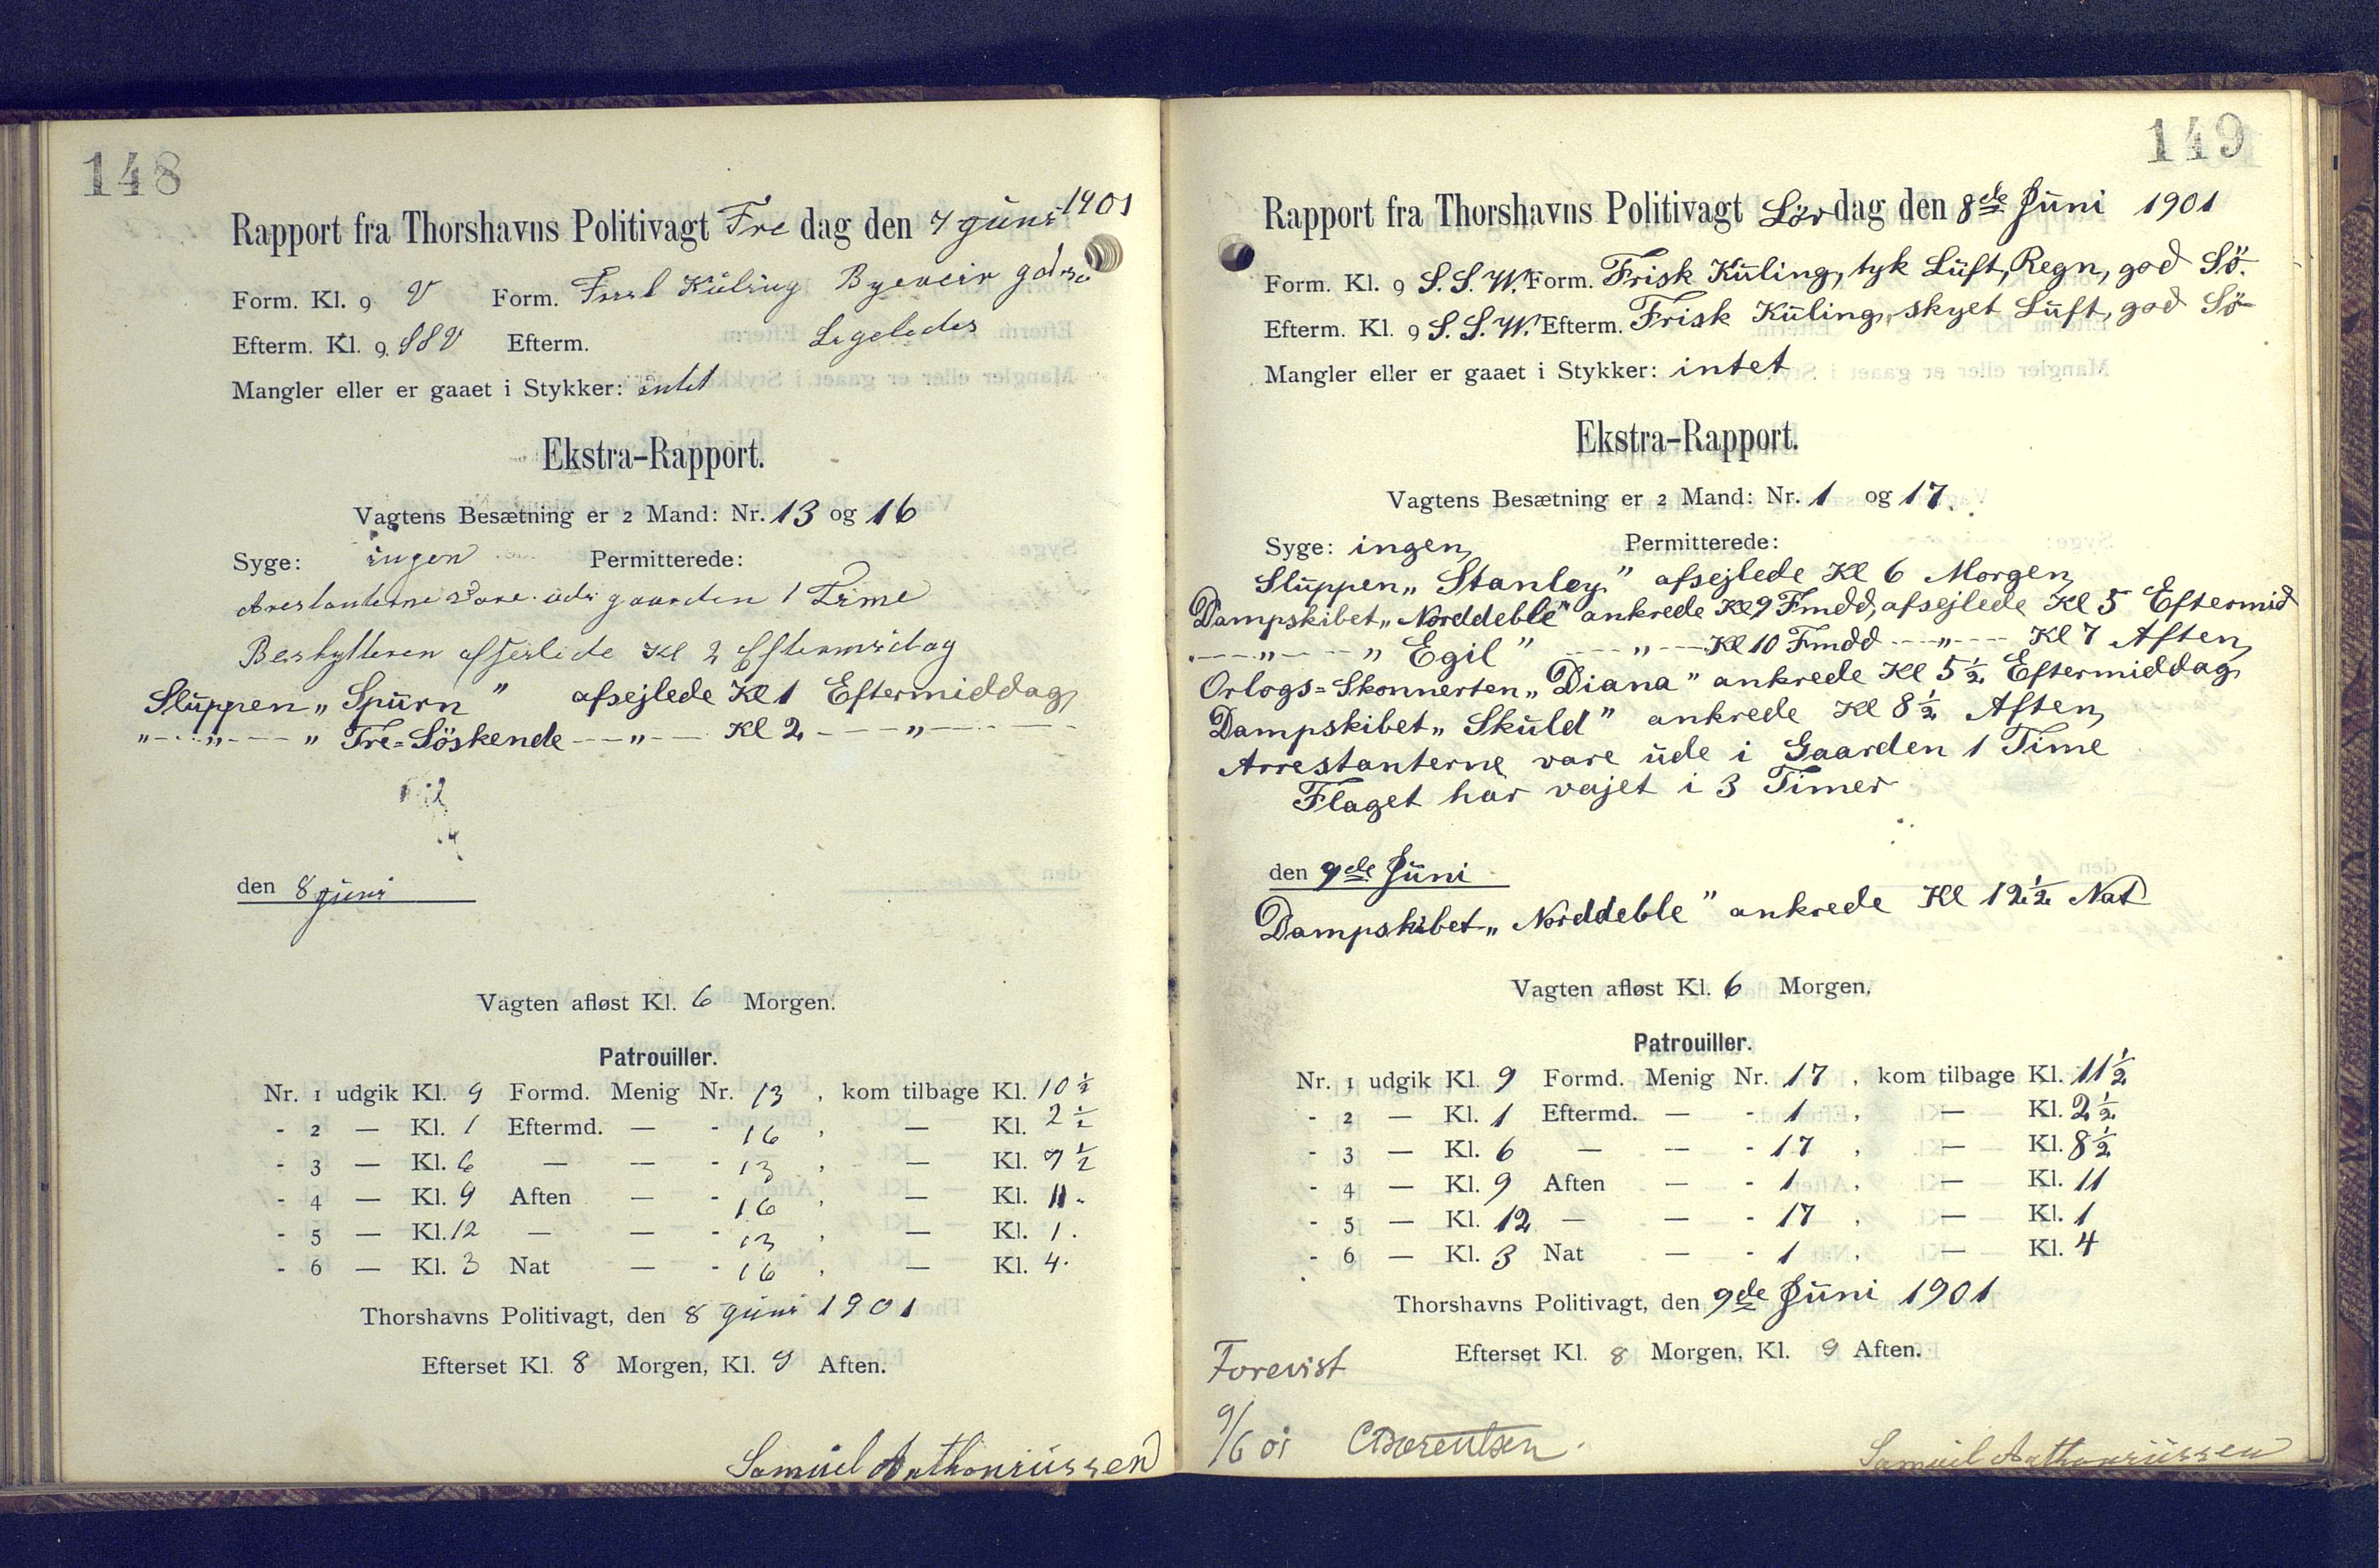 148
Rapport fra Thorshavns Politivagt Fredag den 7 Juni 1901
Form. Kl. 9 V Form. Frisk Kuling Byeveir god Sö
Efterm. Kl. 9 SSV Efterm. Ligeledes
Mangler eller er gaaet i Stykker: intet
Ekstra-Rapport.
Vagtens Besætning er 2 Mand: Nr. 13 og 16
Syge: ingen Permitterede:
Arestanterne vare ude i gaarden 1 Time
Beskytteren afseilede Kl 2 Eftermidag
Sluppen „Spurn” afsejlede Kl 1 Eftermiddag
„ — „ — „ Tre=Söskende — „ — Kl 2 — „ —
den 8 Juni
Vagten afløst Kl. 6 Morgen.
Patrouiller.
Nr. 1 udgik Kl. 9 Formd. Menig Nr. 13, kom tilbage Kl. 10 ½
- 2 — Kl. 1 Eftermd. — - 16, — Kl. 2 ½
- 3 — Kl. 6 — — - 13, — Kl. 7 ½
- 4 — Kl. 9 Aften — - 16, — Kl. 11.
- 5 — Kl. 12 — — - 13, — Kl. 1.
- 6 — Kl. 3 Nat — - 16, — Kl. 4.
Thorshavns Politivagt, den 8 Juni 1901
Efterset Kl. 8 Morgen, Kl. 9 Aften.
Samuel Anthoniussen
149
Rapport fra Thorshavns Politivagt Lördag den 8de Juni 1901
Form. Kl. 9 S.S.W. Form. Frisk Kuling, tyk Luft, Regn, god Sö.
Efterm. Kl. 9 S.S.W. Efterm. Frisk Kuling, skyet Luft, god Sö
Mangler eller er gaaet i Stykker: intet
Ekstra-Rapport.
Vagtens Besætning er 2 Mand: Nr. 1 og 17.
Syge: ingen Permitterede:
Sluppen „Stanley” afsejlede Kl 6 Morgen
Dampskibet „Norddeble” ankrede Kl 9 Fmdd, afsejlede Kl 5 Eftermid
— „ — „ Egil ” — „ — Kl 10 Fmdd — „ — Kl 7 Aften
Orlogs=Skonnerten „Diana” ankrede Kl 5½ Eftermiddag
Dampskibet „Skuld” ankrede Kl 8½ Aften
Arrestanterne vare ude i Gaarden 1 Time
Flaget har vejet i 3 Timer
den 9de Juni
Dampskibet „Norddeble” ankrede Kl 12½ Nat
Vagten afløst Kl. 6 Morgen.
Patrouiller.
Nr. 1 udgik Kl. 9 Formd. Menig Nr. 17, kom tilbage Kl. 11½
- 2 — Kl. 1 Eftermd. — - 1, — Kl. 2½
- 3 — Kl. 6 — — - 17, — Kl. 8½
- 4 — Kl. 9 Aften — - 1, — Kl. 11
- 5 — Kl. 12 — — - 17, — Kl. 1
- 6 — Kl. 3 Nat — - 1, — Kl. 4
Thorshavns Politivagt, den 9de Juni 1901
Efterset Kl. 8 Morgen, Kl. 9 Aften.
Forevist
9/6 01 CBærentsen.
Samuel Anthoniussen